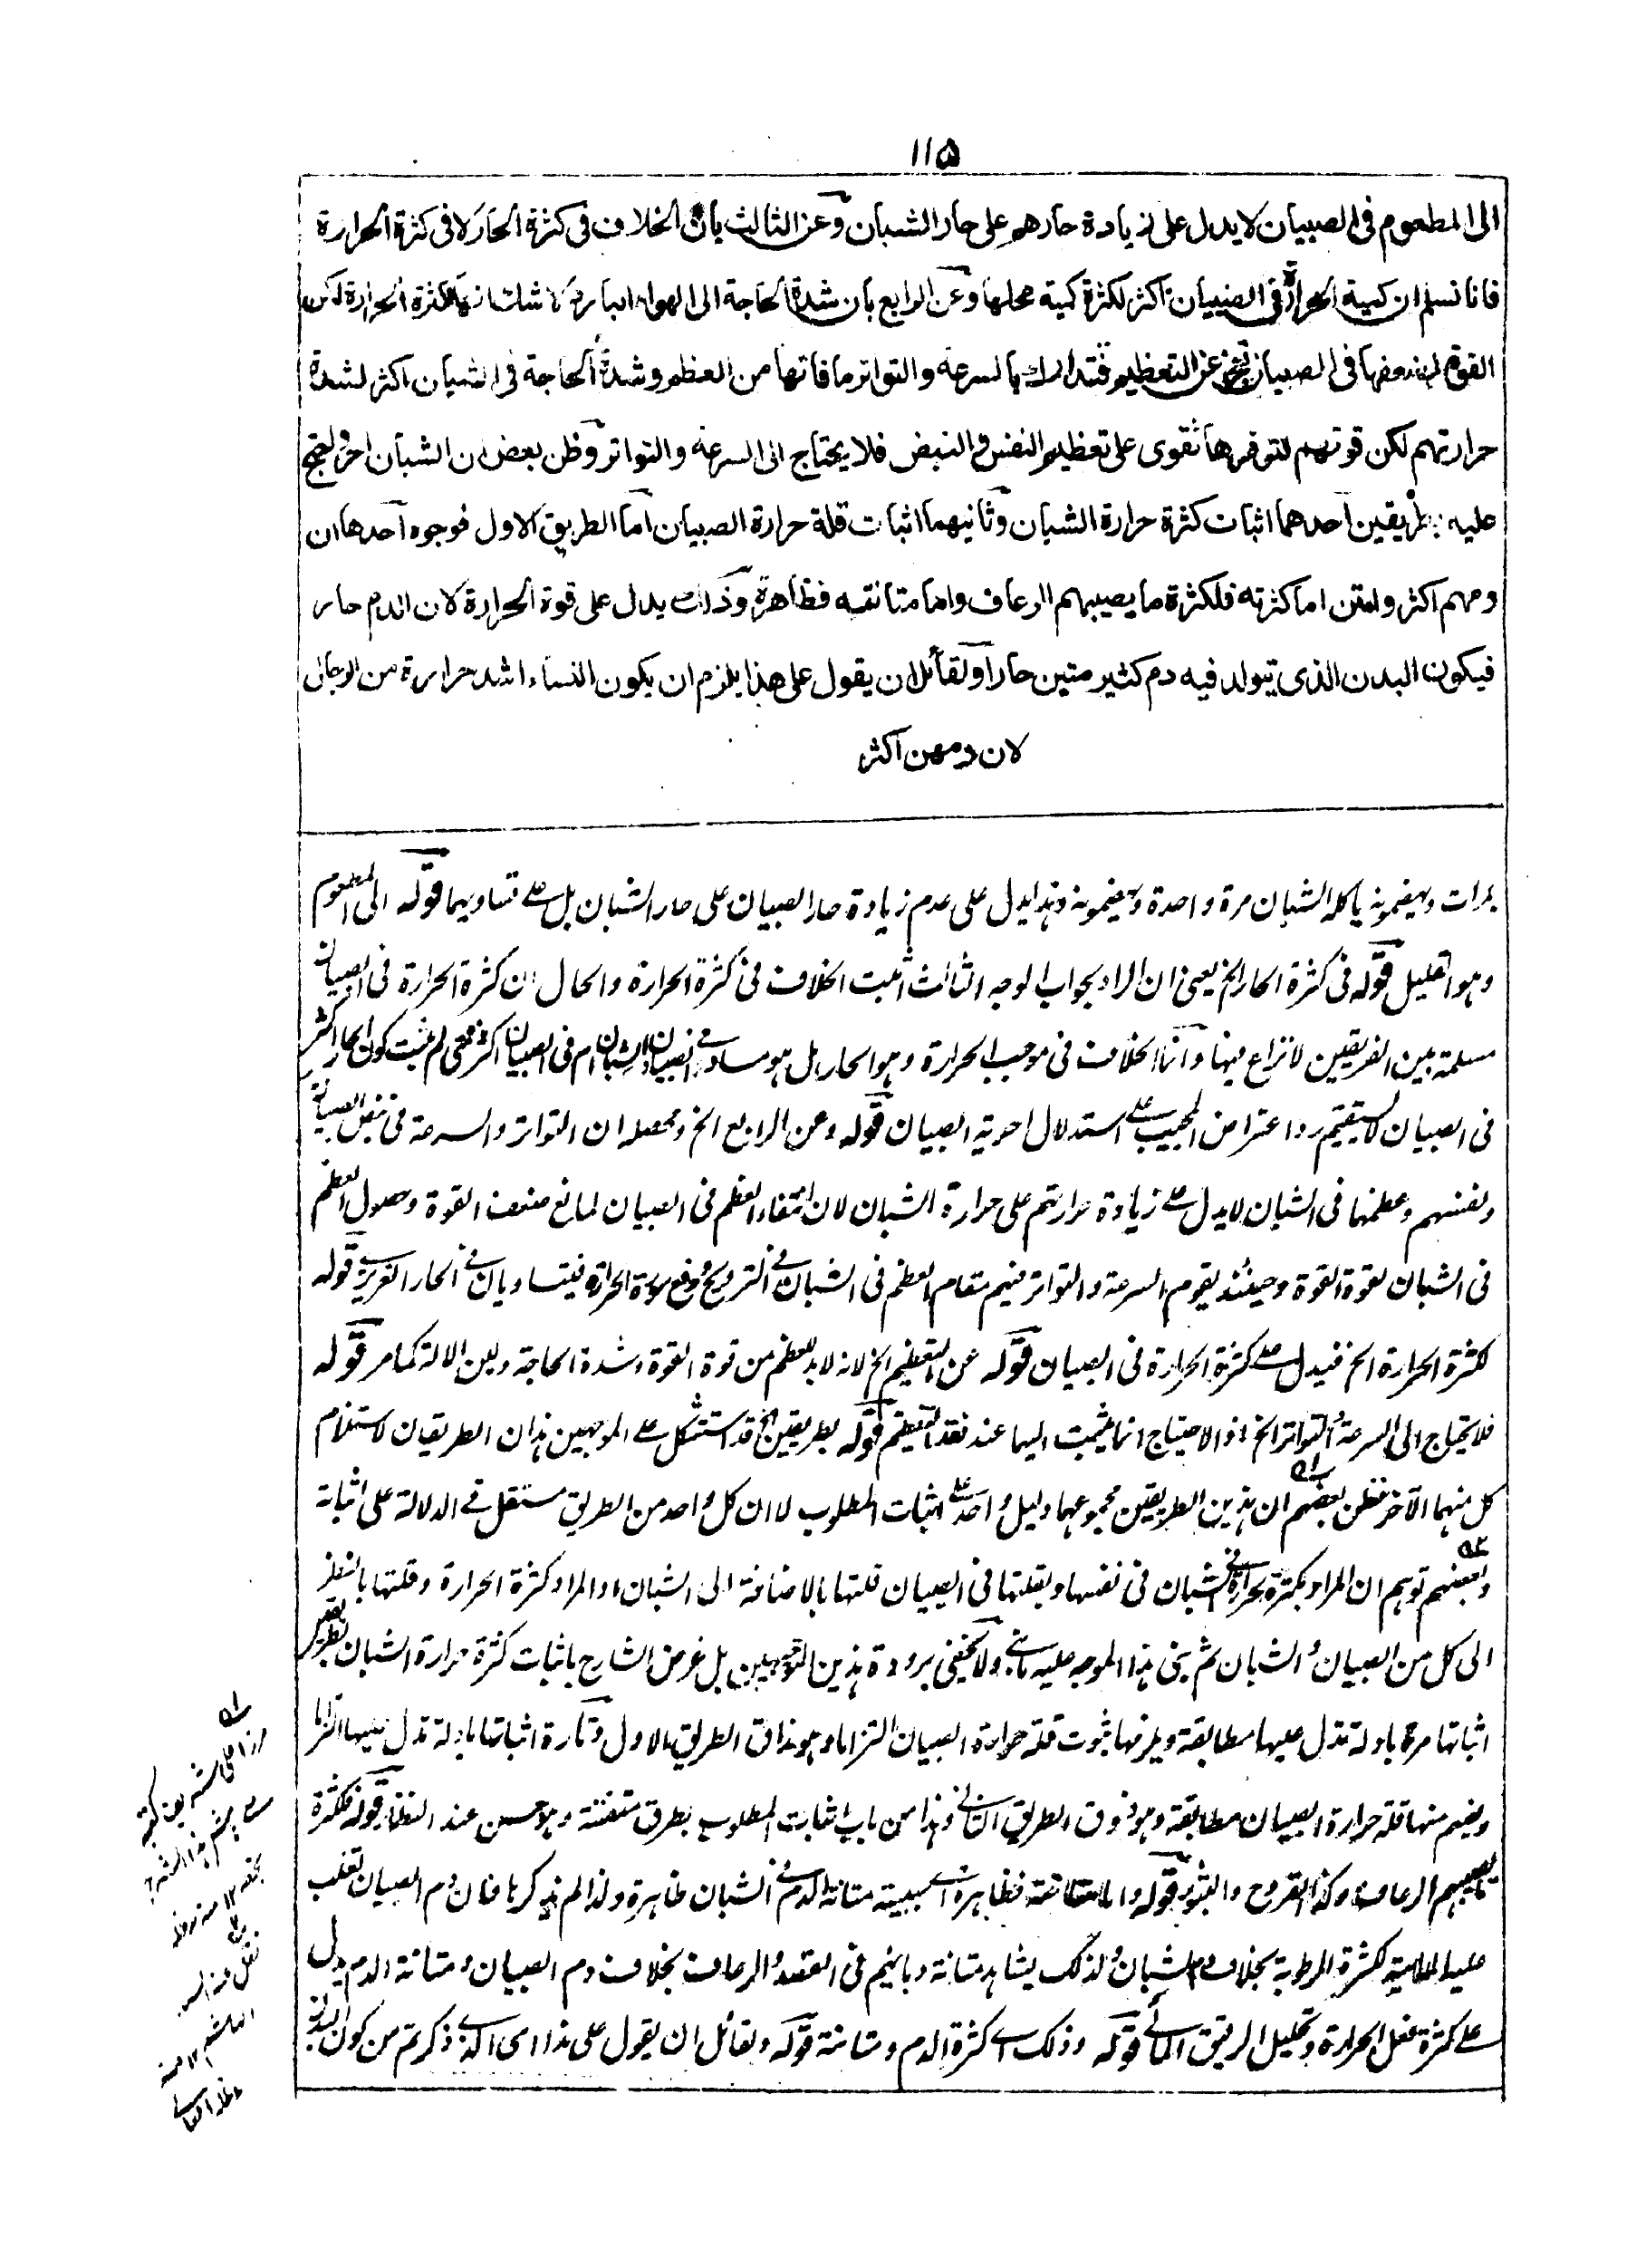 ١١٥
الى المطعوم فى الصبيان لا يدل على زيادة حارهم على حار الشبان وعن الثالث بان الخلاف فى كثرة الحار لا فى كثرة الحرارة
فانا نسلم ان كمية الحرارة فى الصبيان اكثر لكثرة كمية محلها وعن الرابع بان شدة الحاجة الى الهواء البارد لا شك انها لكثرة الحرارة لكن
القوة لضعفها فى الصبيان تعجز عن التعظيم فتدارك بالسرعة والتواتر ما فاتها من العظم وشدة الحاجة فى الشبان اكثر لشدة
حرارتهم لكن قوتهم لتوفرها تقوى على تعظيم النفس والنبض فلا يحتاج الى السرعة والتواتر وظن بعض ان الشبان احر واحتج
عليه بطريقين احدهما اثبات كثرة حرارة الشبان وثانيهما اثبات قلة حرارة الصبيان اما الطريق الاول فوجوه احدها ان
دمهم اكثر وامتن اما كثرته فلكثرة ما يصيبهم الرعاف واما متانته فظاهرة وذلك يدل على قوة الحرارة لان الدم حار
فيكون البدن الذى يتولد فيه دم كثير متين حارا ولقائل ان يقول على هذا يلزم ان يكون النساء اشد حرارة من الرجال
لان دمهن اكثر
بمرات ويهضمونه يا كله الشبان مرة واحدة ويهضمونه وهذا يدل على عدم زيادة حار الصبيان على حار الشبان بل على تساويهما قوله الى المطعوم
وهو تعليل قوله فى كثرة الحار الخ يعنى ان المراد بجواب الوجه الثالث اثبت الخلاف فى كثرة الحرارة والحال ان كثرة الحرارة فى الصبيان
مسلمة بين الفريقين لا نزاع فيها وانما الخلاف فى موجب الحرارة وهو الحار بل هو مساو فى الصبيان والشبان ام فى الصبيان اكثر فمتى لم يثبت كون الحار اكثر
فى الصبيان لا يستقيم رد اعتراض المجيب على استدلال احرية الصبيان قوله وعن الرابع الخ ومحصله ان التواتر والسرعة فى نبض الصبيان
ونفسهم وعظمها فى الشبان لا يدل على زيادة حرارتهم على حرارة الشبان لان انتفاء العظم فى الصبيان لمانع ضعف القوة وحصول العظم
فى الشبان لقوة القوة وحينئذ يقوم السرعة والتواتر فيهم مقام العظم فى الشبان فى الترويح ودفع سورة الحرارة فيتساويان فى الحار الغريزى قوله
لكثرة الحرارة الخ فيدل على كثرة الحرارة فى الصبيان قوله عن التعظيم الخ لانه لابد للعظم من قوة القوة وشدة الحاجة ولين الالة كما مر قوله
فلا يحتاج الى السرعة والتواتر الخ اذ الاحتياج انما يثبت اليهما عند فقد التعظيم قوله بطريقين الخ قد استشكل على الموجهين هذان الطريقان لاستلزام
كل منهما الآخر فظن بعضهم ان هذين الطريقين مجموعهما دليل واحد على اثبات المطلوب لا ان كل واحد من الطريق مستقل فى الدلالة على اثباته
وبعضهم توهم ان المراد بكثرة حرارة الشبان فى نفسها وبقلتها فى الصبيان قلتها بالاضافة الى الشبان او المراد كثرة الحرارة وقلتها بالنظر
الى كل من الصبيان والشبان ثم بنى هذا الموجه عليه ولا يخفى برودة هذين التوجيهين بل غرض الشارح باثبات كثرة حرارة الشبان
اثباتها مرة بادلة تدل عليها مطابقة ويلزمها ثبوت قلة حرارة الصبيان التزاما وهو مذاق الطريق الاول وتارة اثباتها بادلة تدل عليها التزاما
ويفهم منها قلة حرارة الصبيان مطابقة وهو ذوق الطريق الثانى وهذا من باب اثبات المطلوب بطرق متفننة وهو احسن عند النظار قوله فلكثرة
ما يصيبهم الرعاف وكذا القروح والبثور قوله واما متانته فظاهرة اى سببية متانة الدم فى الشبان ظاهرة ولذا لم يذكرها فان دم الصبيان تغلب
عليه المائية لكثرة الرطوبة بخلاف دم الشبان ولذلك يشاهد متانة دمائهم فى الفصد والرعاف بخلاف دم الصبيان ومتانة الدم يدل
على كثرة فعل الحرارة وتحليل الرقيق المائى قوله وذلك اى كثرة الدم ومتانته قوله ولقائل ان يقول على هذا اى الذى ذكرتم من كون البدن